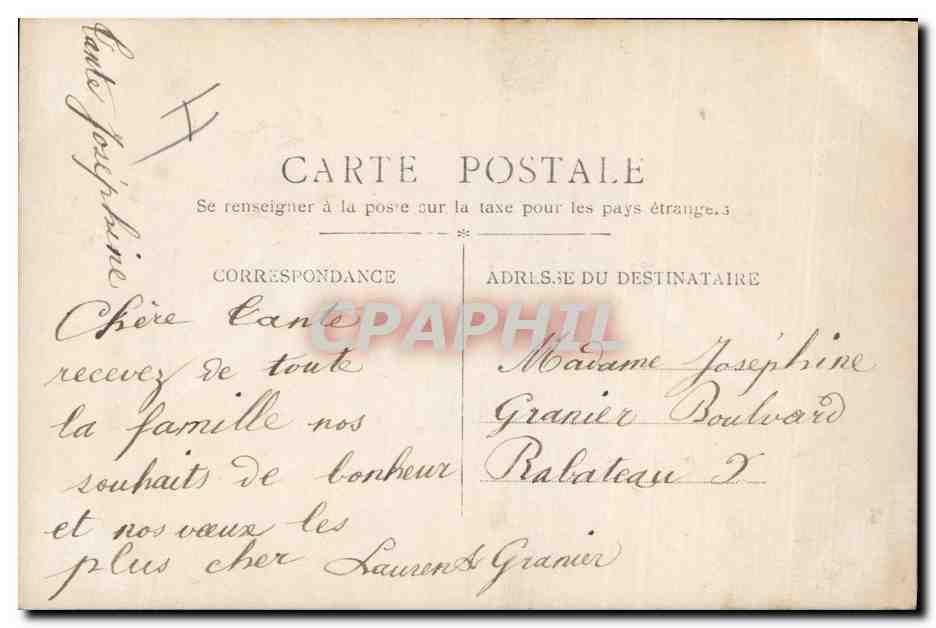 Tante Joséphine
CARTE POSTALE
Se renseigner à la poste sur la taxe pour les pays étrangers
CORRESPONDANCE
Chère tante
recevez de toute
la famille nos
souhaits de bonheur
et nos vœux les
plus cher Laurent Granier
ADRESSE DU DESTINATAIRE
Madame Joséphine
Granier Boulvard
Rabateau
CPAPHIL